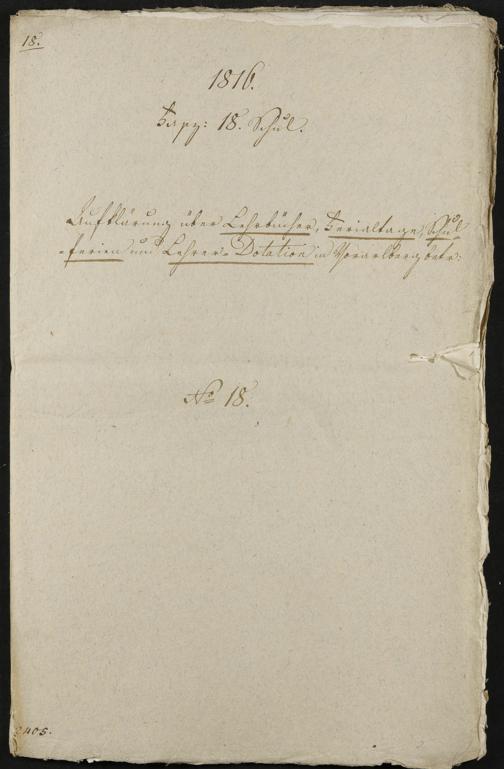 18.
1816.
Fasz: 18. Schul.
Aufklärung über Lehrbücher, Ferialtage, Schul-
-ferien und Lehrer-Dotation in Vorarlberg betr:
No 18.
405.